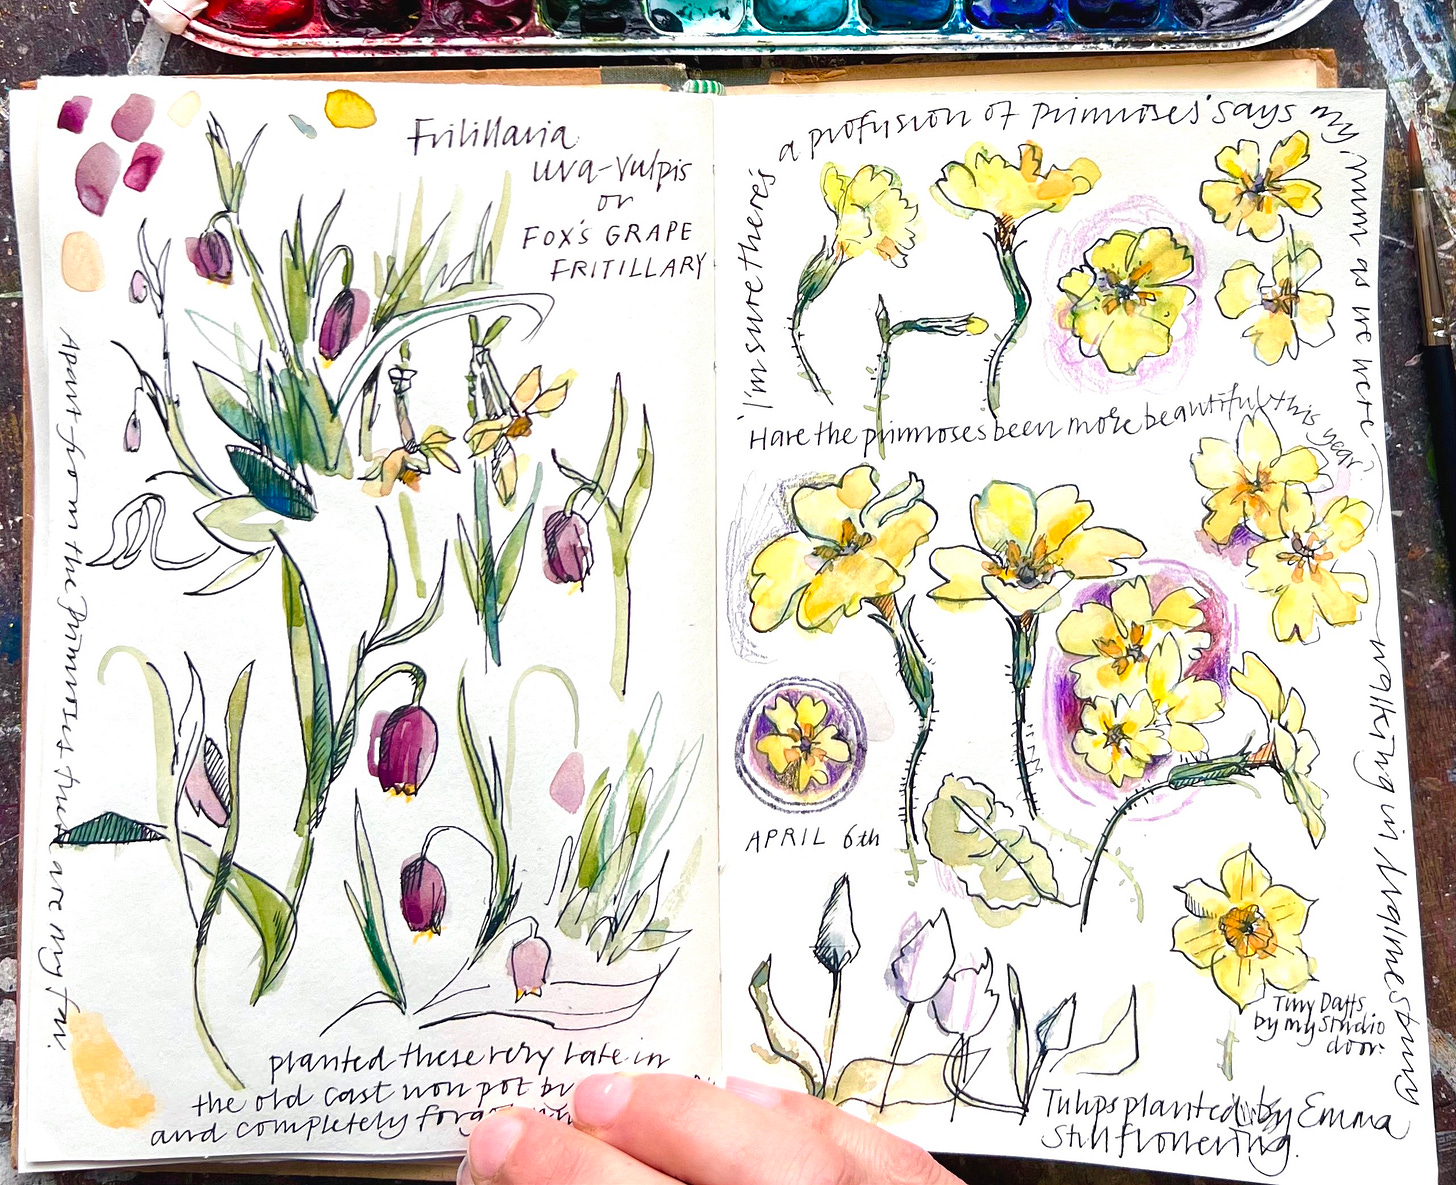 Fritillaria
uva-vulpis
or
FOX'S GRAPE
FRITILLARY
Apart from the primroses these are my fav.
planted these very late in
the old cast iron pot by
and completely
'I'm sure there's a profusion of primroses' says my mum as we were walking in
Have the primroses been more beautiful this year?
APRIL 6th
Tiny Daffs
by my studio
door.
Tulips planted by Emma
still flowering.